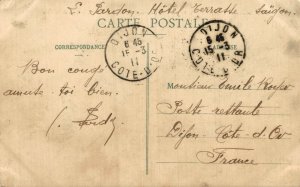 Pardon. Hôtel Terrasse Saïgon.
CARTE POSTALE
CORRESPONDANCE
DIJON
6 45
15-3
11
COTE-D'OR
DIJON
6 45
15-3
11
COTE-D'OR
Bon congé
amuse toi bien.
Monsieur Emile
Poste restante
Dijon Côte d'Or
France